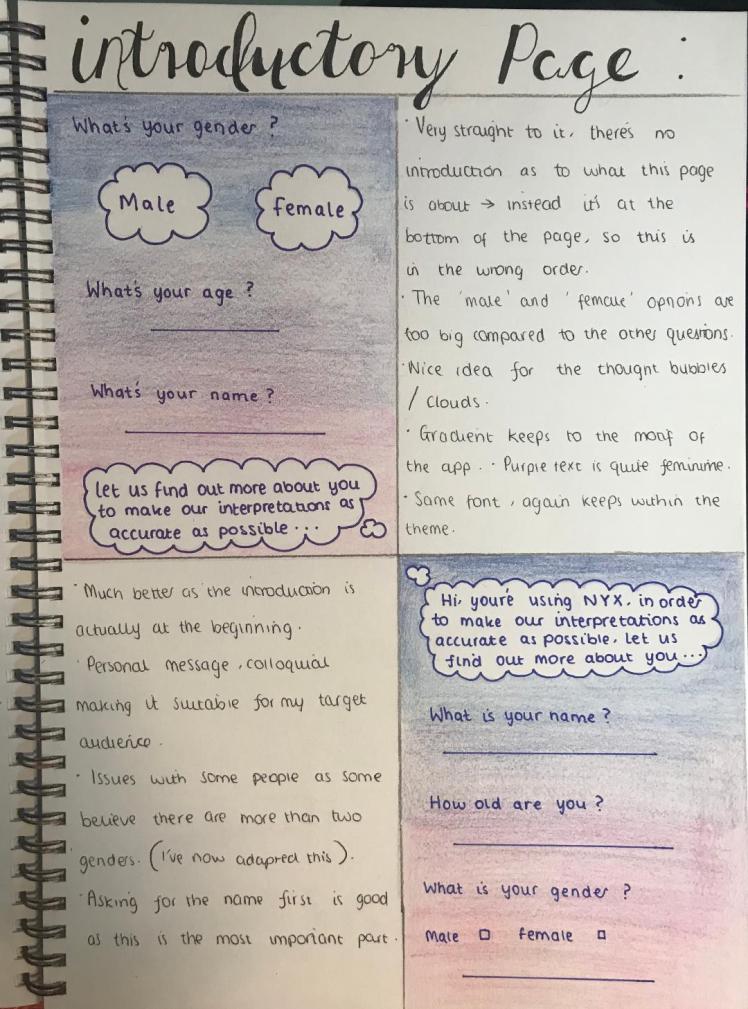 introductory Page :
What's your gender ?
Male
female
What's your age ?
What's your name ?
let us find out more about you
to make our interpretations as
accurate as possible ...
· Very straight to it, there's no
introduction as to what this page
is about → instead it's at the
bottom of the page, so this is
in the wrong order.
· The 'male' and 'female' options are
too big compared to the other questions.
· Nice idea for the thought bubbles
/ clouds.
· Gradient keeps to the motif of
the app. · Purple text is quite feminine.
· Same font, again keeps within the
theme.
· Much better as the introduction is
actually at the beginning.
· Personal message, colloquial
making it suitable for my target
audience.
· Issues with some people as some
believe there are more than two
genders. (I've now adapted this).
· Asking for the name first is good
as this is the most important part.
Hi, you're using NYX, in order
to make our interpretations as
accurate as possible, let us
find out more about you...
What is your name ?
How old are you ?
What is your gender ?
Male □ female □